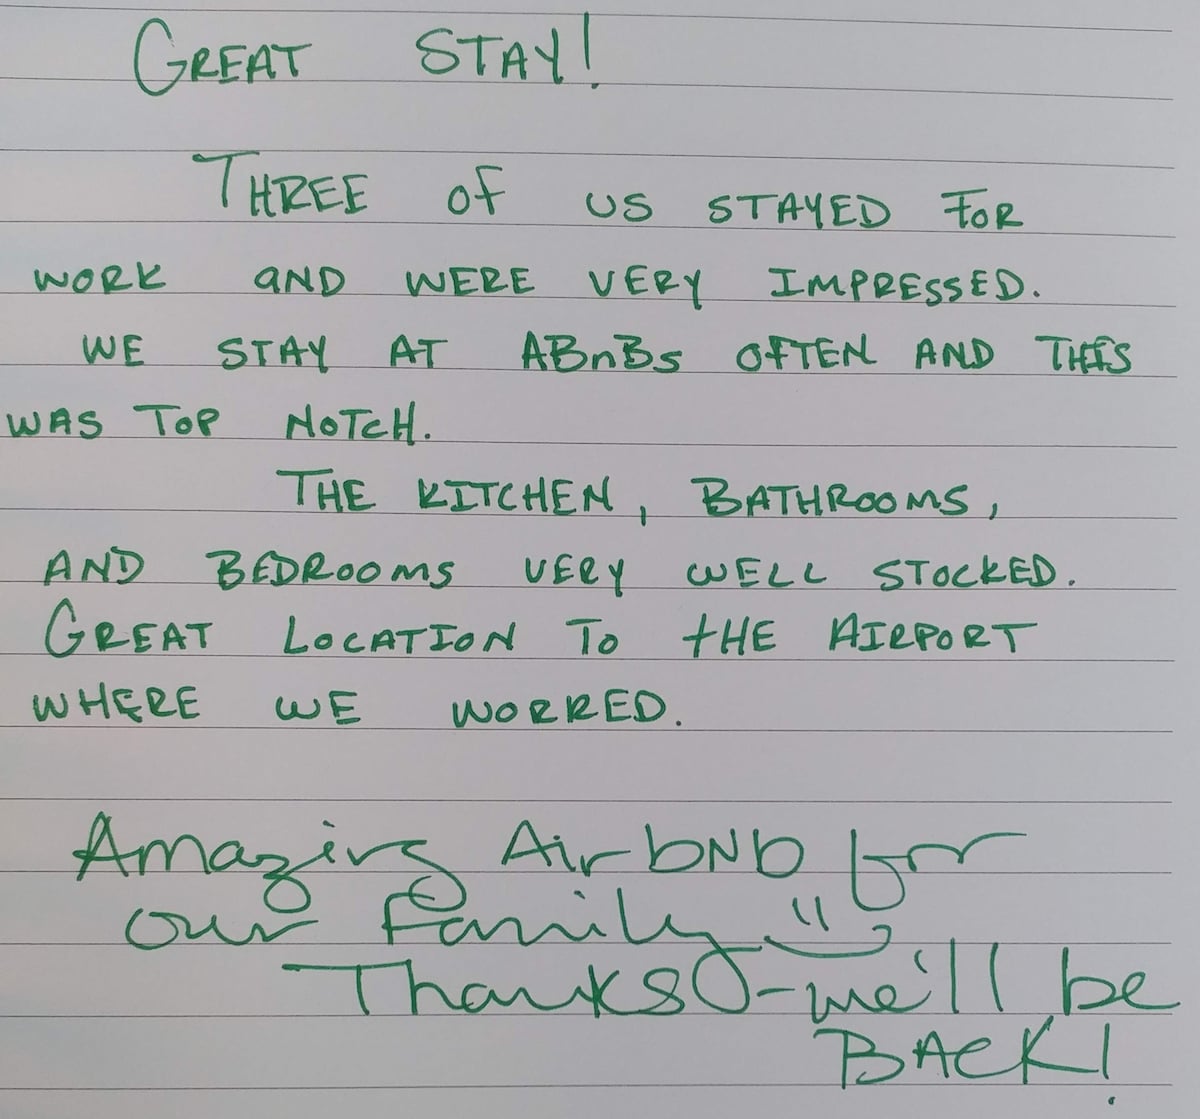 GREAT STAY!
THREE OF US STAYED FOR
WORK AND WERE VERY IMPRESSED.
WE STAY AT ABnBs OFTEN AND THIS
WAS TOP NOTCH.
THE KITCHEN, BATHROOMS,
AND BEDROOMS VERY WELL STOCKED.
GREAT LOCATION TO THE AIRPORT
WHERE WE WORRED.
Amazing AirbNb for
our family
Thanks - we'll be
BACK!